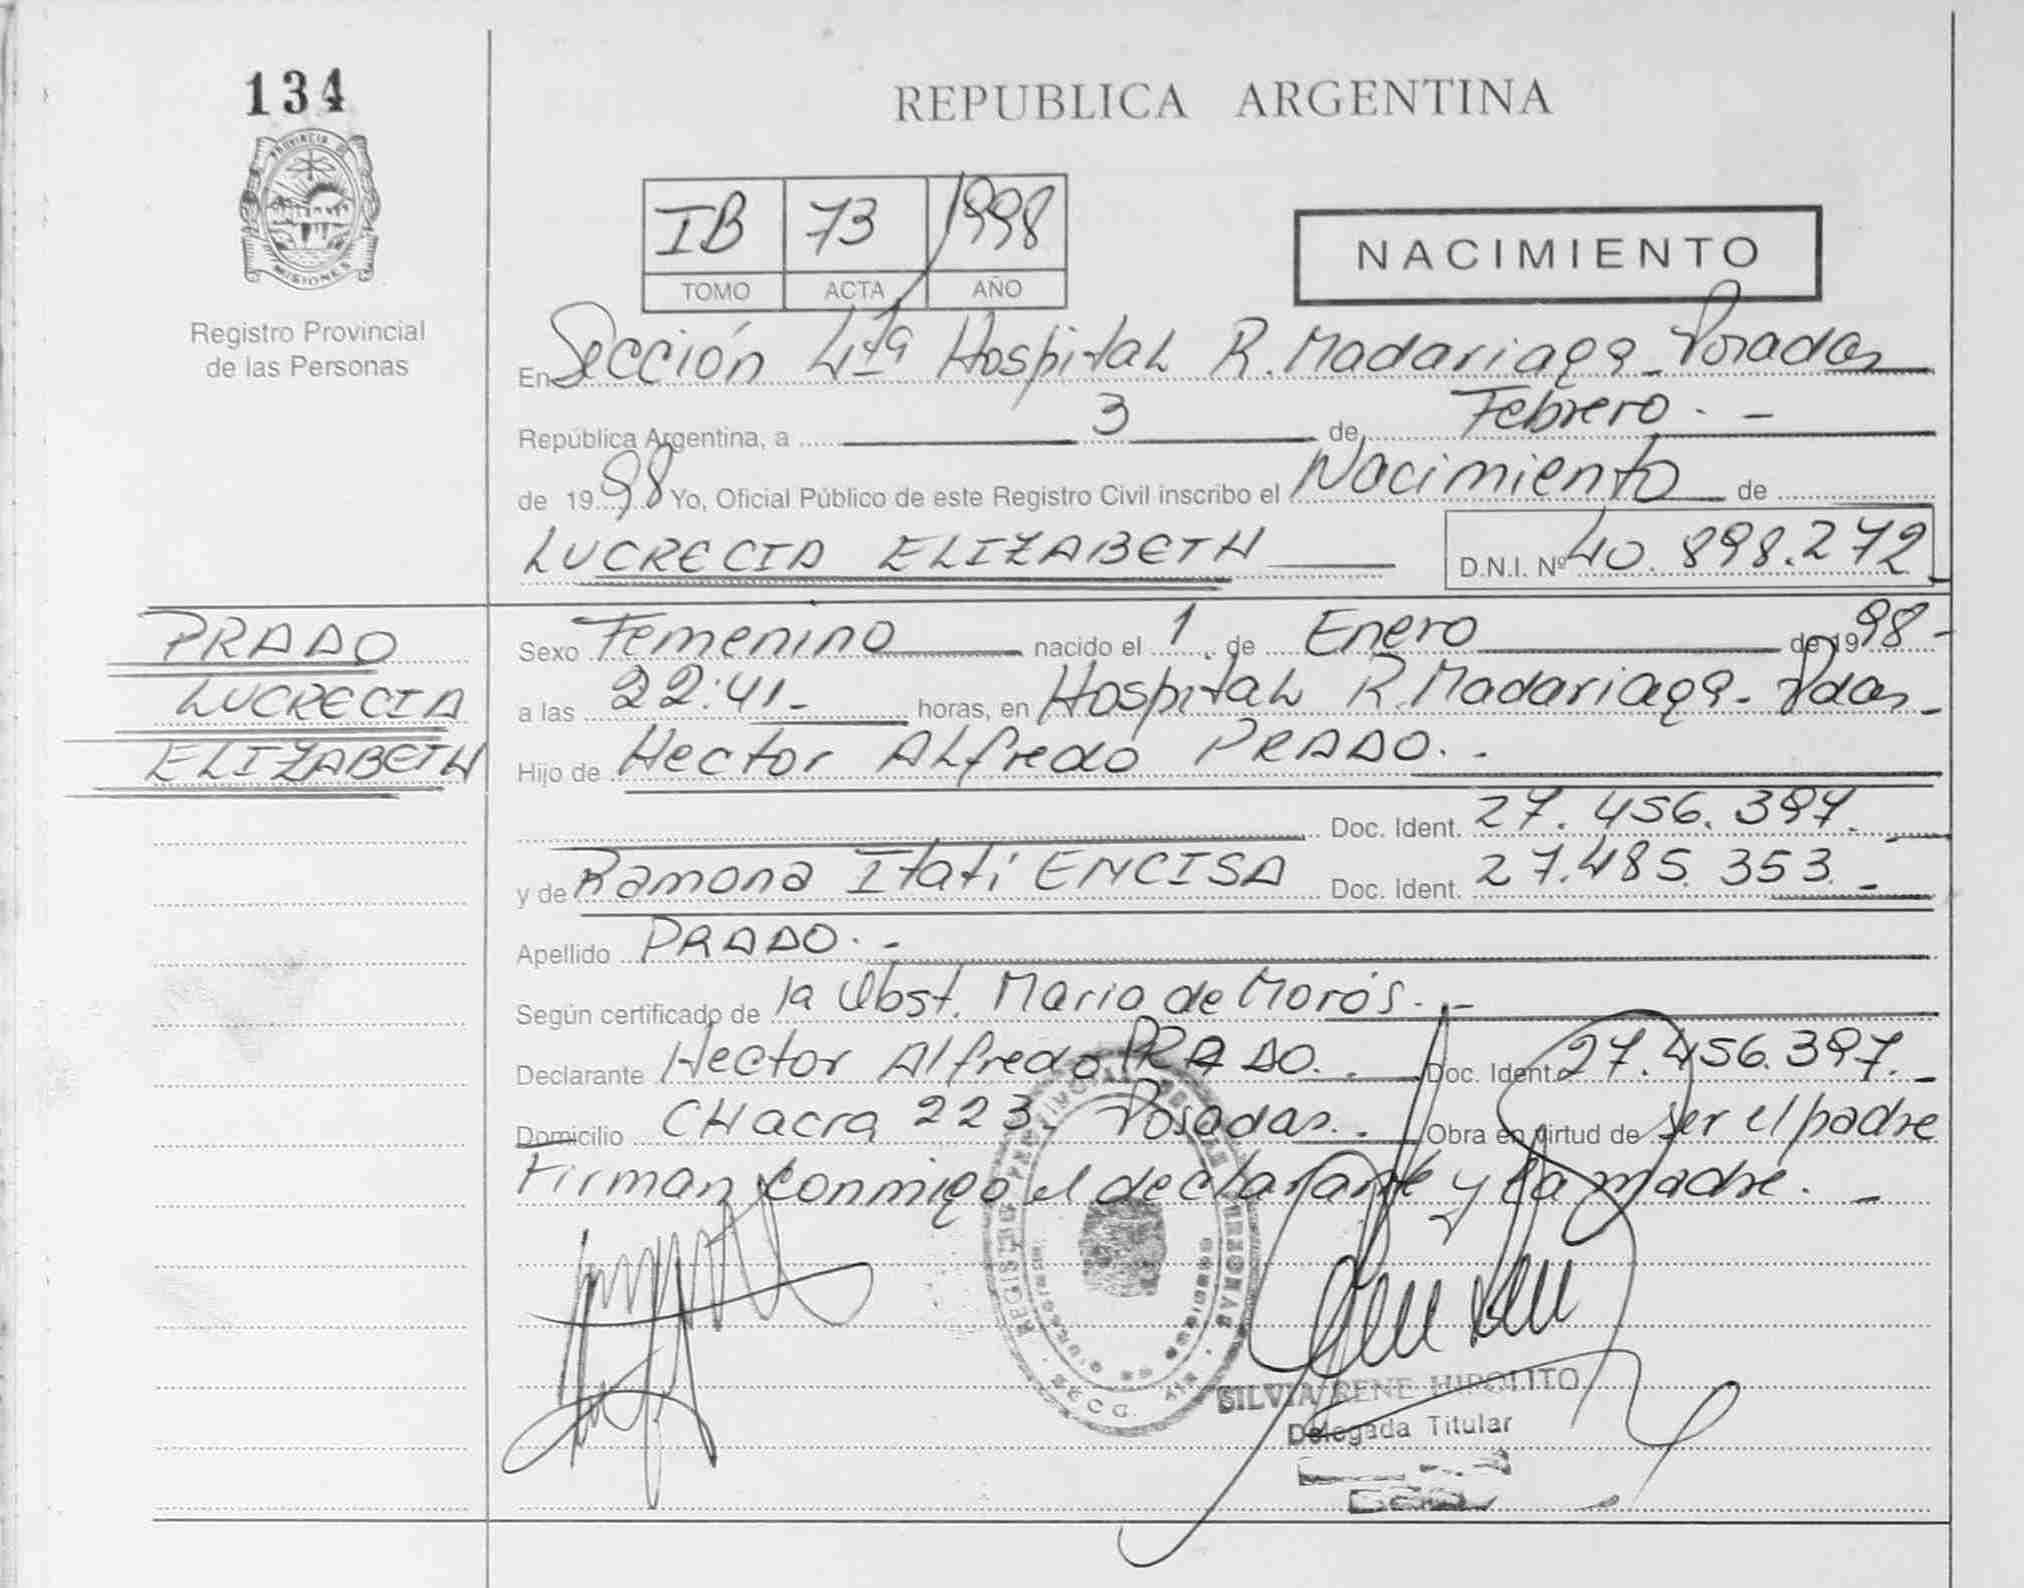 134
PROVINCIA DE
MISIONES
Registro Provincial
de las Personas
REPUBLICA ARGENTINA
IB 73 1998
TOMO ACTA AÑO
NACIMIENTO
En Sección 4ta Hospital R. Madariaga - Posadas
República Argentina, a 3 de Febrero. -
de 1998 Yo, Oficial Público de este Registro Civil inscribo el Nacimiento de
LUCRECIA ELIZABETH D.N.I. Nº 40.898.272
PRADO
LUCRECIA
ELIZABETH
Sexo Femenino nacido el 1 de Enero de 1998 -
a las 22:41 - horas, en Hospital R. Madariaga - Pdas -
Hijo de Hector Alfredo PRADO. -
Doc. Ident. 27.456.397. -
y de Ramona Itatí ENCISA Doc. Ident. 27.485.353. -
Apellido PRADO. -
Según certificado de la Obst. Maria de Morós. -
Declarante Hector Alfredo PRADO. - Doc. Ident. 27.456.397. -
Domicilio CHacra 223 Posadas. - Obra en virtud de ser el padre
Firman conmigo el declarante y la madre. -
SILVIA IRENE HIPOLITO
Delegada Titular